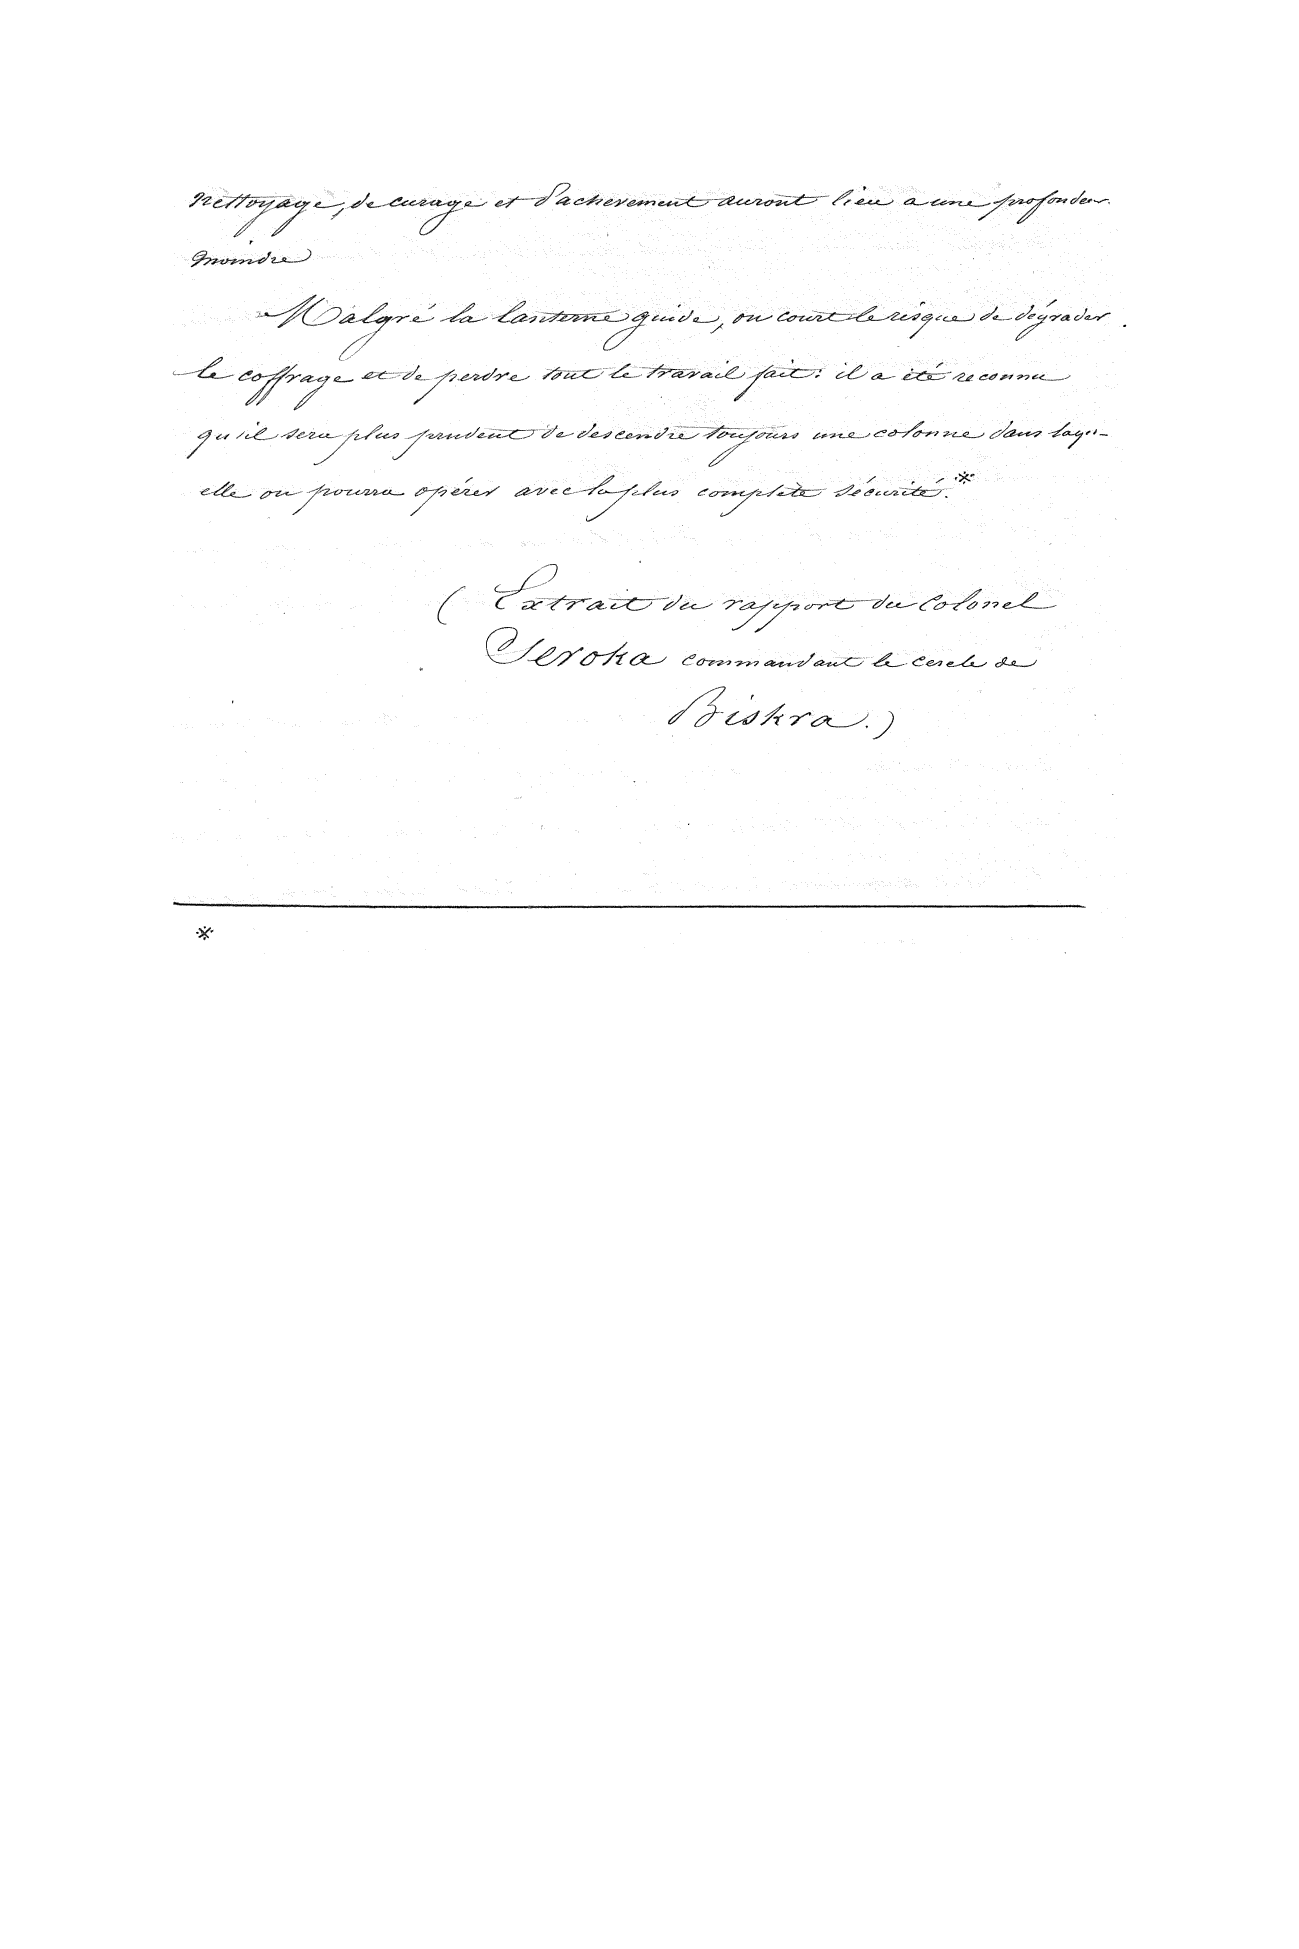 nettoyage, de curage et d'achevement auront lieu a une profondeur
moindre
Malgré la lanterne guide, on court le risque de dégrader
le coffrage et de perdre tout le travail fait : il a été reconnu
qu'il sera plus prudent de descendre toujours une colonne dans laqu-
elle on pourra opérer avec la plus complète sécurité.※
( Extrait du rapport du Colonel
Seroka commandant le cercle de
Biskra. )
※